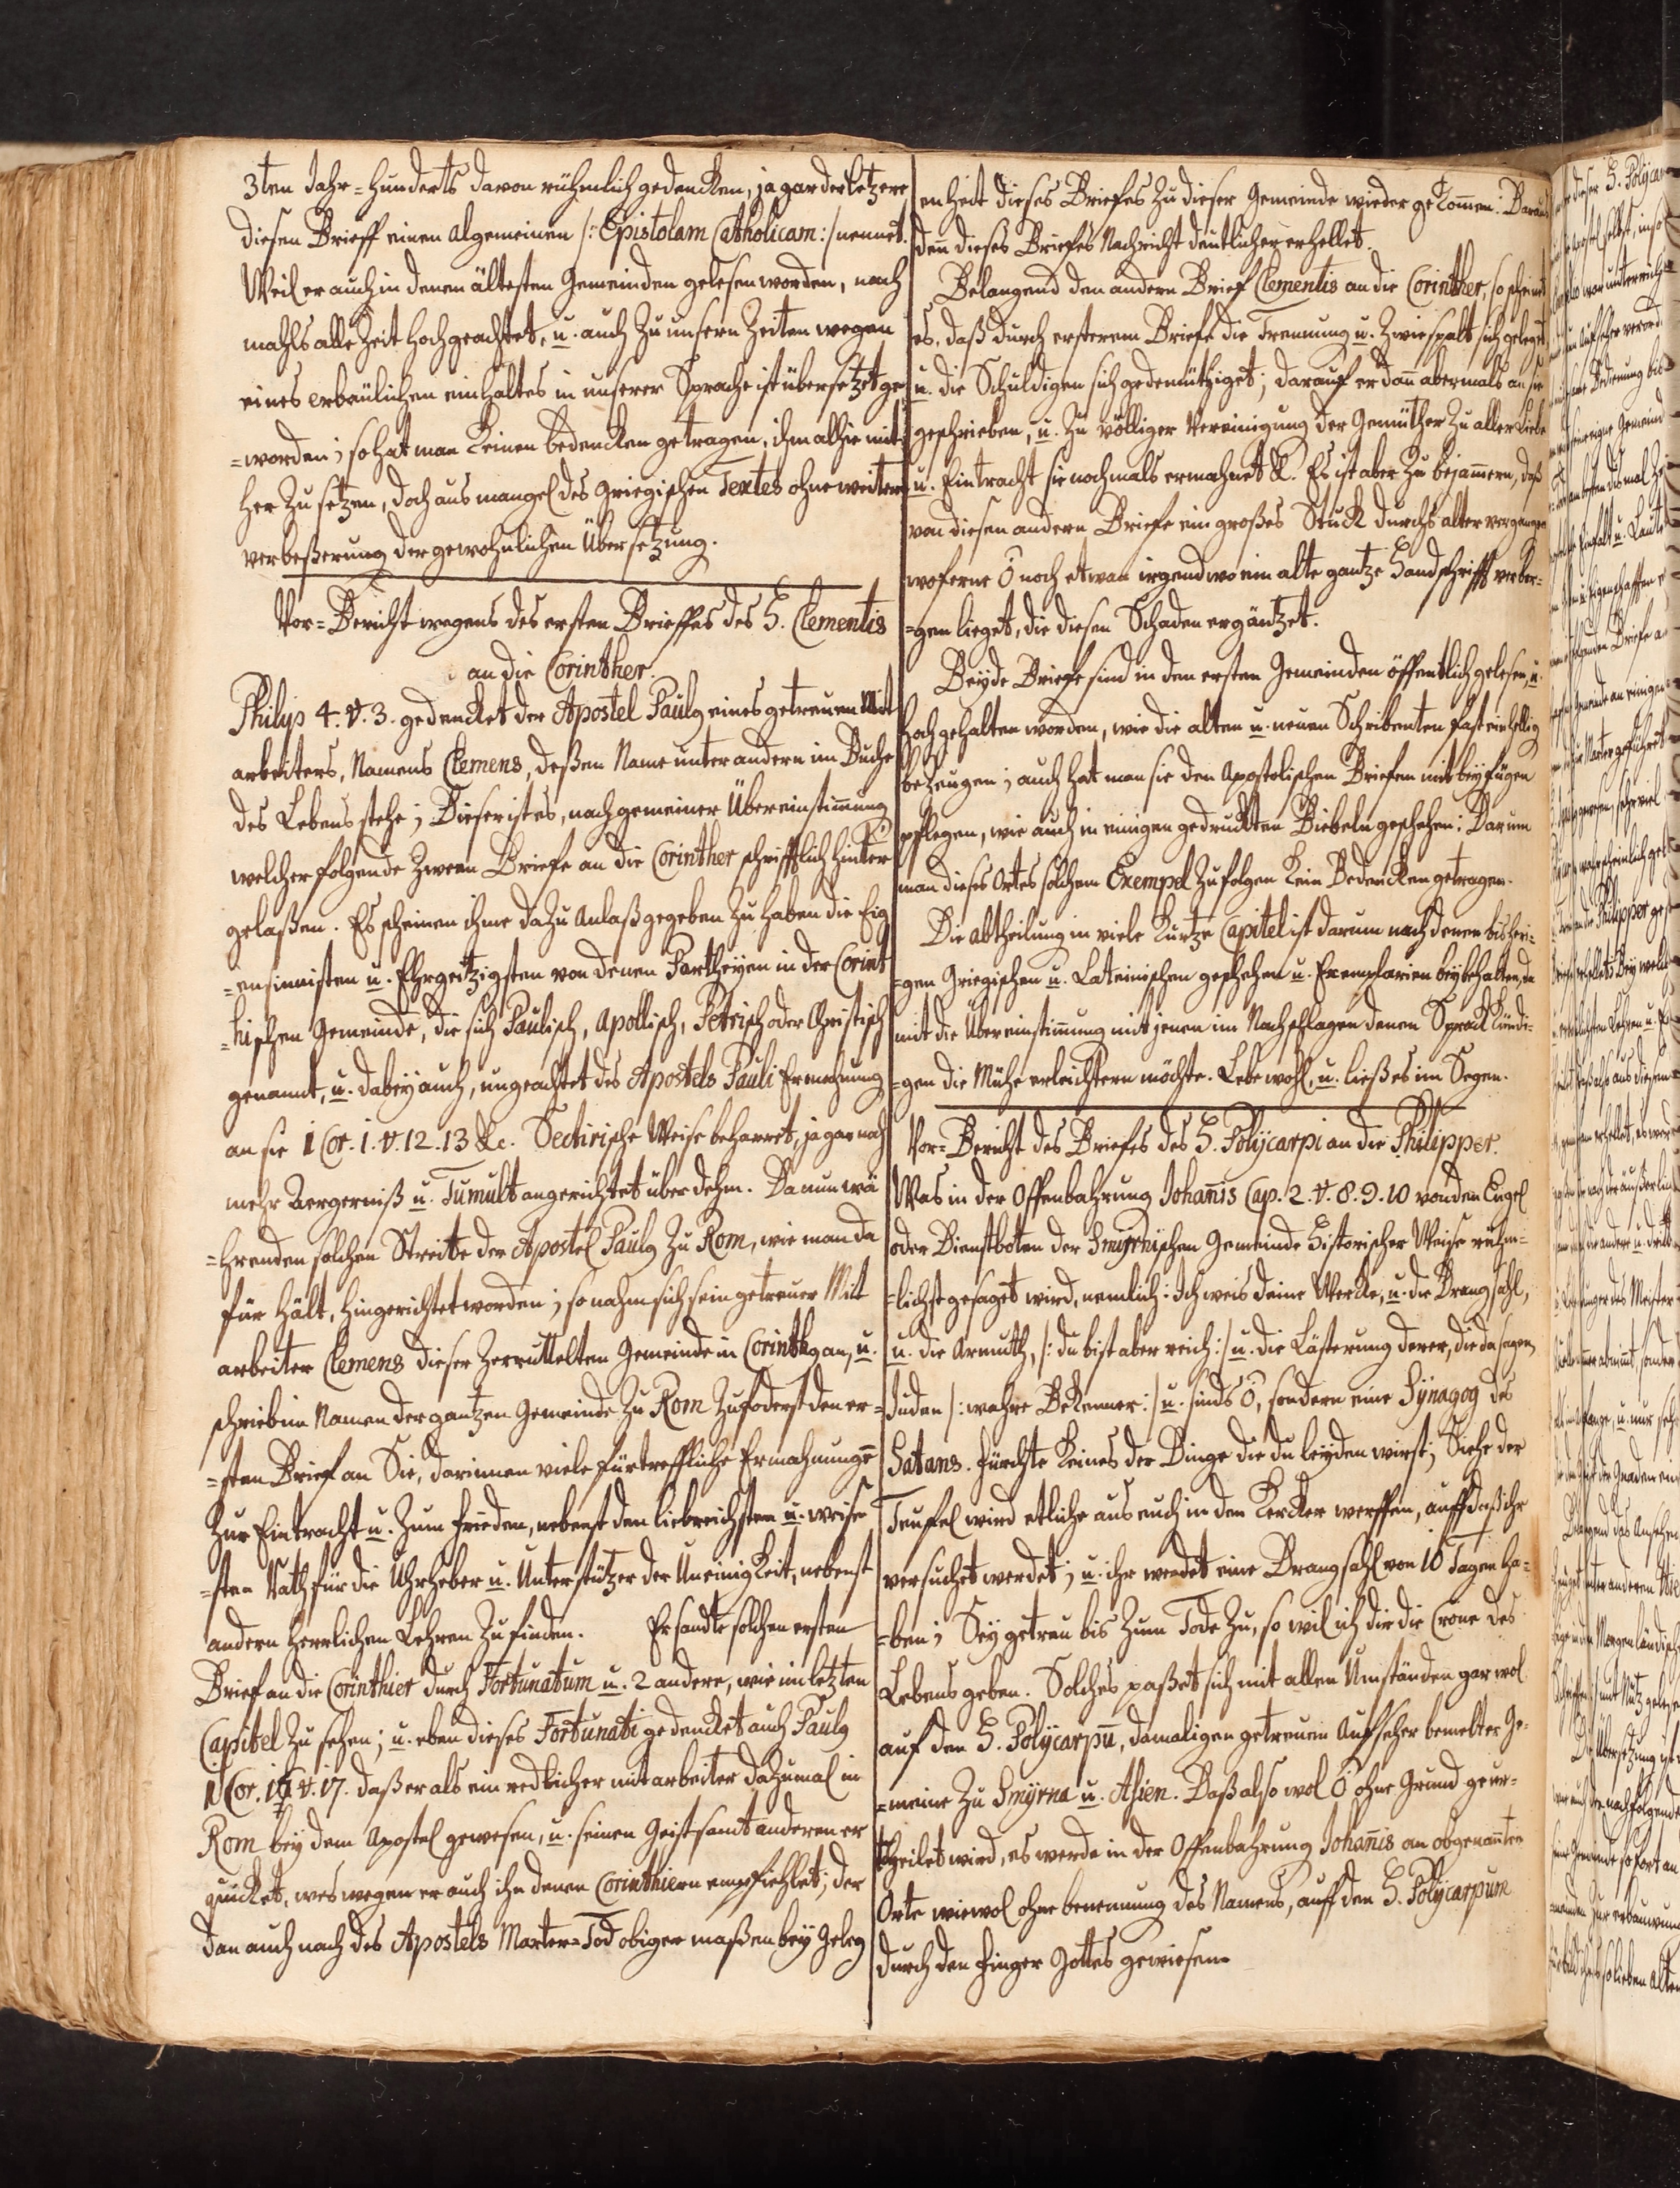 3ten Jahr-Hunderts davon rühmlich gedencken, ja gar der letzere
diesen Brieff einen algemeinen /: Epistolam Catholicam :/ nennet.
Weil er auch in denen ältesten Gemeinden gelesen worden, nach
mahls alle Zeit hochgeachtet, u. auch zu unsern Zeiten wegen
eines erbaulichen einhaltes in unserer Sprache ist übersetzet ge
=worden; so hat man keinen bedencken getragen, ihm alhie mit
her zu setzen, doch aus mangel des Griegischen Textes ohne weitere
verbeßerung der gewohnlichen Übersetzung.
Vor-Bericht wegens des ersten Brieffes des H. Clementis
an die Corinther.
Philip 4. v. 3. gedencket der Apostel Paulg eines getreuen Mit
arbeiters, Namens Clemens, deßen Name unter andern im Buche
des Lebens stehe; Dieser ist es, nach gemeiner Übereinstimung
welcher folgende Zween Briefe an die Corinther schrifftlich hinter
gelaßen. Es scheinen ihme dazu Anlaß gegeben zu haben die Eig
=ensinnisten u. Ehrgeitzigsten von denen Partheyen in der Corint
=hischen Gemeinde, die sich Paulisch, Apollisch, Petrisch oder Christisch
genannt, u. dabey auch, ungeachtet des Apostels Pauli Ermahnung
an sie 1 Cor. 1. v. 12. 13 &c. Sectirische Weise beharret, ja gar noch
mehr Aergerniß u. Tumult angerichtet über dehm. Da nun wä
=hrenden solchen Streite der Apostel Paulg zu Rom, wie man da
für hält, hingerichtet worden; so nahm sich sein getreuer Mit
arbeiter Clemens dieser zerruttelten Gemeinde in Corinthg an, u.
schrieb im Namen der gantzen Gemeinde zu Rom zufoderst den er=
=sten Brief an Sie, darinnen viele fürtreffliche Ermahnungē
zur Eintracht u. zum Frieden, nebenst den liebreichsten u. weise
=sten Rath für die Uhrheber u. Unterstützer der Uneinigkeit, nebenst
andern herrlichen Lehren zu finden. Er sandte solchen ersten
Brief an die Corinthier durch Fortunatum u. 2 andere, wie im letzten
Capitel zu sehen; u. eben dieses Fortunati gedencket auch Paulg
1 Cor. 16 v. 17. daß er als ein redlicher mitarbeiter dazumal in
Rom bey dem Apostel gewesen, u. seinen Geist samt anderen er
quicket, weswegen er auch ihn denen Corinthiern empfiehlet; der
dan auch nach des Apostels Marter-Tod obiger maßen bey Geleg
enheit dieses Briefes zu dieser Gemeinde wieder gekomen: Daraus
den dieses Briefes Nachricht deutlicher erhellet.
Belangend den andern Brief Clementis an die Corinther, so scheinet
es, daß durch ersterem Briefe die Trennung u. Zwiespalt sich geleget
u. die Schuldigen sich gedemüthiget; darauf er dañ abermals an sie
geschrieben, u. zu völliger Vereinigung der Gemüther zu aller Liebe
u. Eintracht sie nochmals ermahnet &. Es ist aber zu bejamern, daß
von diesen andern Briefe ein großes Stuck durchs alter vergangen
woferne Ō noch etwan irgendwo ein alte gantze Handschrifft verbor=
=gen lieget, die diesen Schaden ergäntzet.
Beyde Briefe sind in den ersten Gemeinden öffentlich gelesen, u.
hoch gehalten worden, wie die alten u. neuen Scribenten fast einhellig
bezeugen; auch hat man sie den Apostolischen Briefen mit beyfügen
pflegen, wie auch in einigen gedruckten Biebeln geschehen: Darum
man dieses Ortes solchem Exempel zu folgen kein Bedencken getragen.
Die abtheilung in viele kurtze Capitel ist darum nach denen bisheri=
=gen Griegischen u. Lateinischen geschehen u. Exemplarien beybehalten, da
mit die Übereinstimung mit jenen im Nachschlagen denen Sprach kündi=
=gen die Mühe erleichtern möchte. Lebe wohl, u. ließ es im Segen.
Vor-Bericht des Briefes des H. Polijcarpi an die Philipper.
Was in der Offenbahrung Johanis Cap. 2. v. 8. 9. 10 von dem Engel
oder Dienstboten der Smijrnischen Gemeinde Historischer Weise rühm=
=lichst gesaget wird, nemlich: Ich weis deine Wercke, u. die Drangsahl,
u. die Armuth, /: du bist aber reich :/ u. die Lästerung derer, die da sagen,
Juden /: wahre Bekenner :/ u. sinds Ō, sondern eine Sijnagog des
Satans. Fürchte keines der Dinge die du leyden wirst; Siehe der
Teuffel wird etliche aus euch in den Kercker werffen, auff daß ihr
versuchet werdet; u. ihr werdet eine Drangsahl von 10 Tagen ha=
=ben; Sey getreu bis zum Tode zu, so wil ich dir die Crone des
Lebens geben. Solches paßet sich mit allen Umständen gar wol
auf den H. Polijcarpū, damaligen getreuen Aufseher bemelter Ge=
=meine zu Smijrna u. Asien. Daß also wol Ō ohne Grund geur=
theilet wird, es werde in der Offenbahrung Johanis an obgenañten
Orte wiewol ohne benennung des Namens, auff den H. Polijcarpum
durch den Finger Gottes gewiesen.